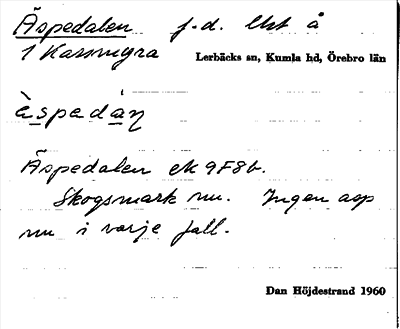 Äspedalen f.d. lht å
1 Kassmyra Lerbäcks sn, Kumla hd, Örebro län
Äspedalen ek 9F8b.
Skogsmark nu. Ingen asp
nu i varje fall.
Dan Höjdestrand 1960